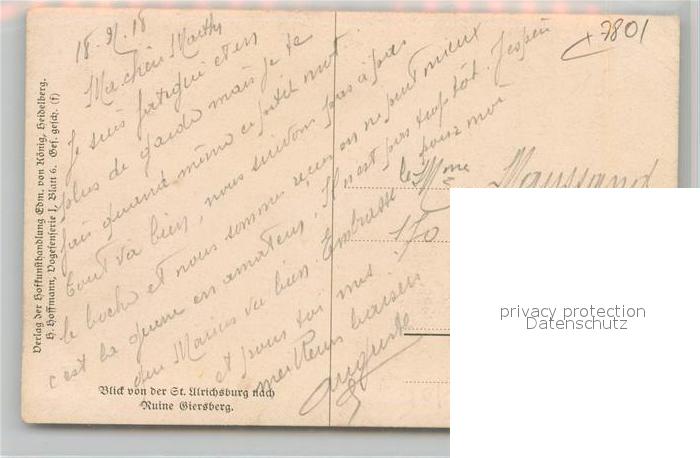 + 7801
18.9.18
Ma chérie Marthe
Je suis fatigué et en
plus de garde mais je te
fais quand même ce petit mot.
tout va bien, nous suivons pas à pas
le boche et nous sommes reçus on ne peut mieux
c'est la guerre en amateur. Il n'est pas trop tôt. J'espère
que Marius va bien. Embrasse le pour moi
et pour toi mes
meilleurs baisers
Auguste
Mme Maussand
170
Verlag der Hofkunsthandlung Edm. von König, Heidelberg.
H. Hoffmann, Vogesenserie I, Blatt 6. Ges. gesch. (f)
Blick von der St. Ulrichsburg nach
Ruine Giersberg.
privacy protection
Datenschutz